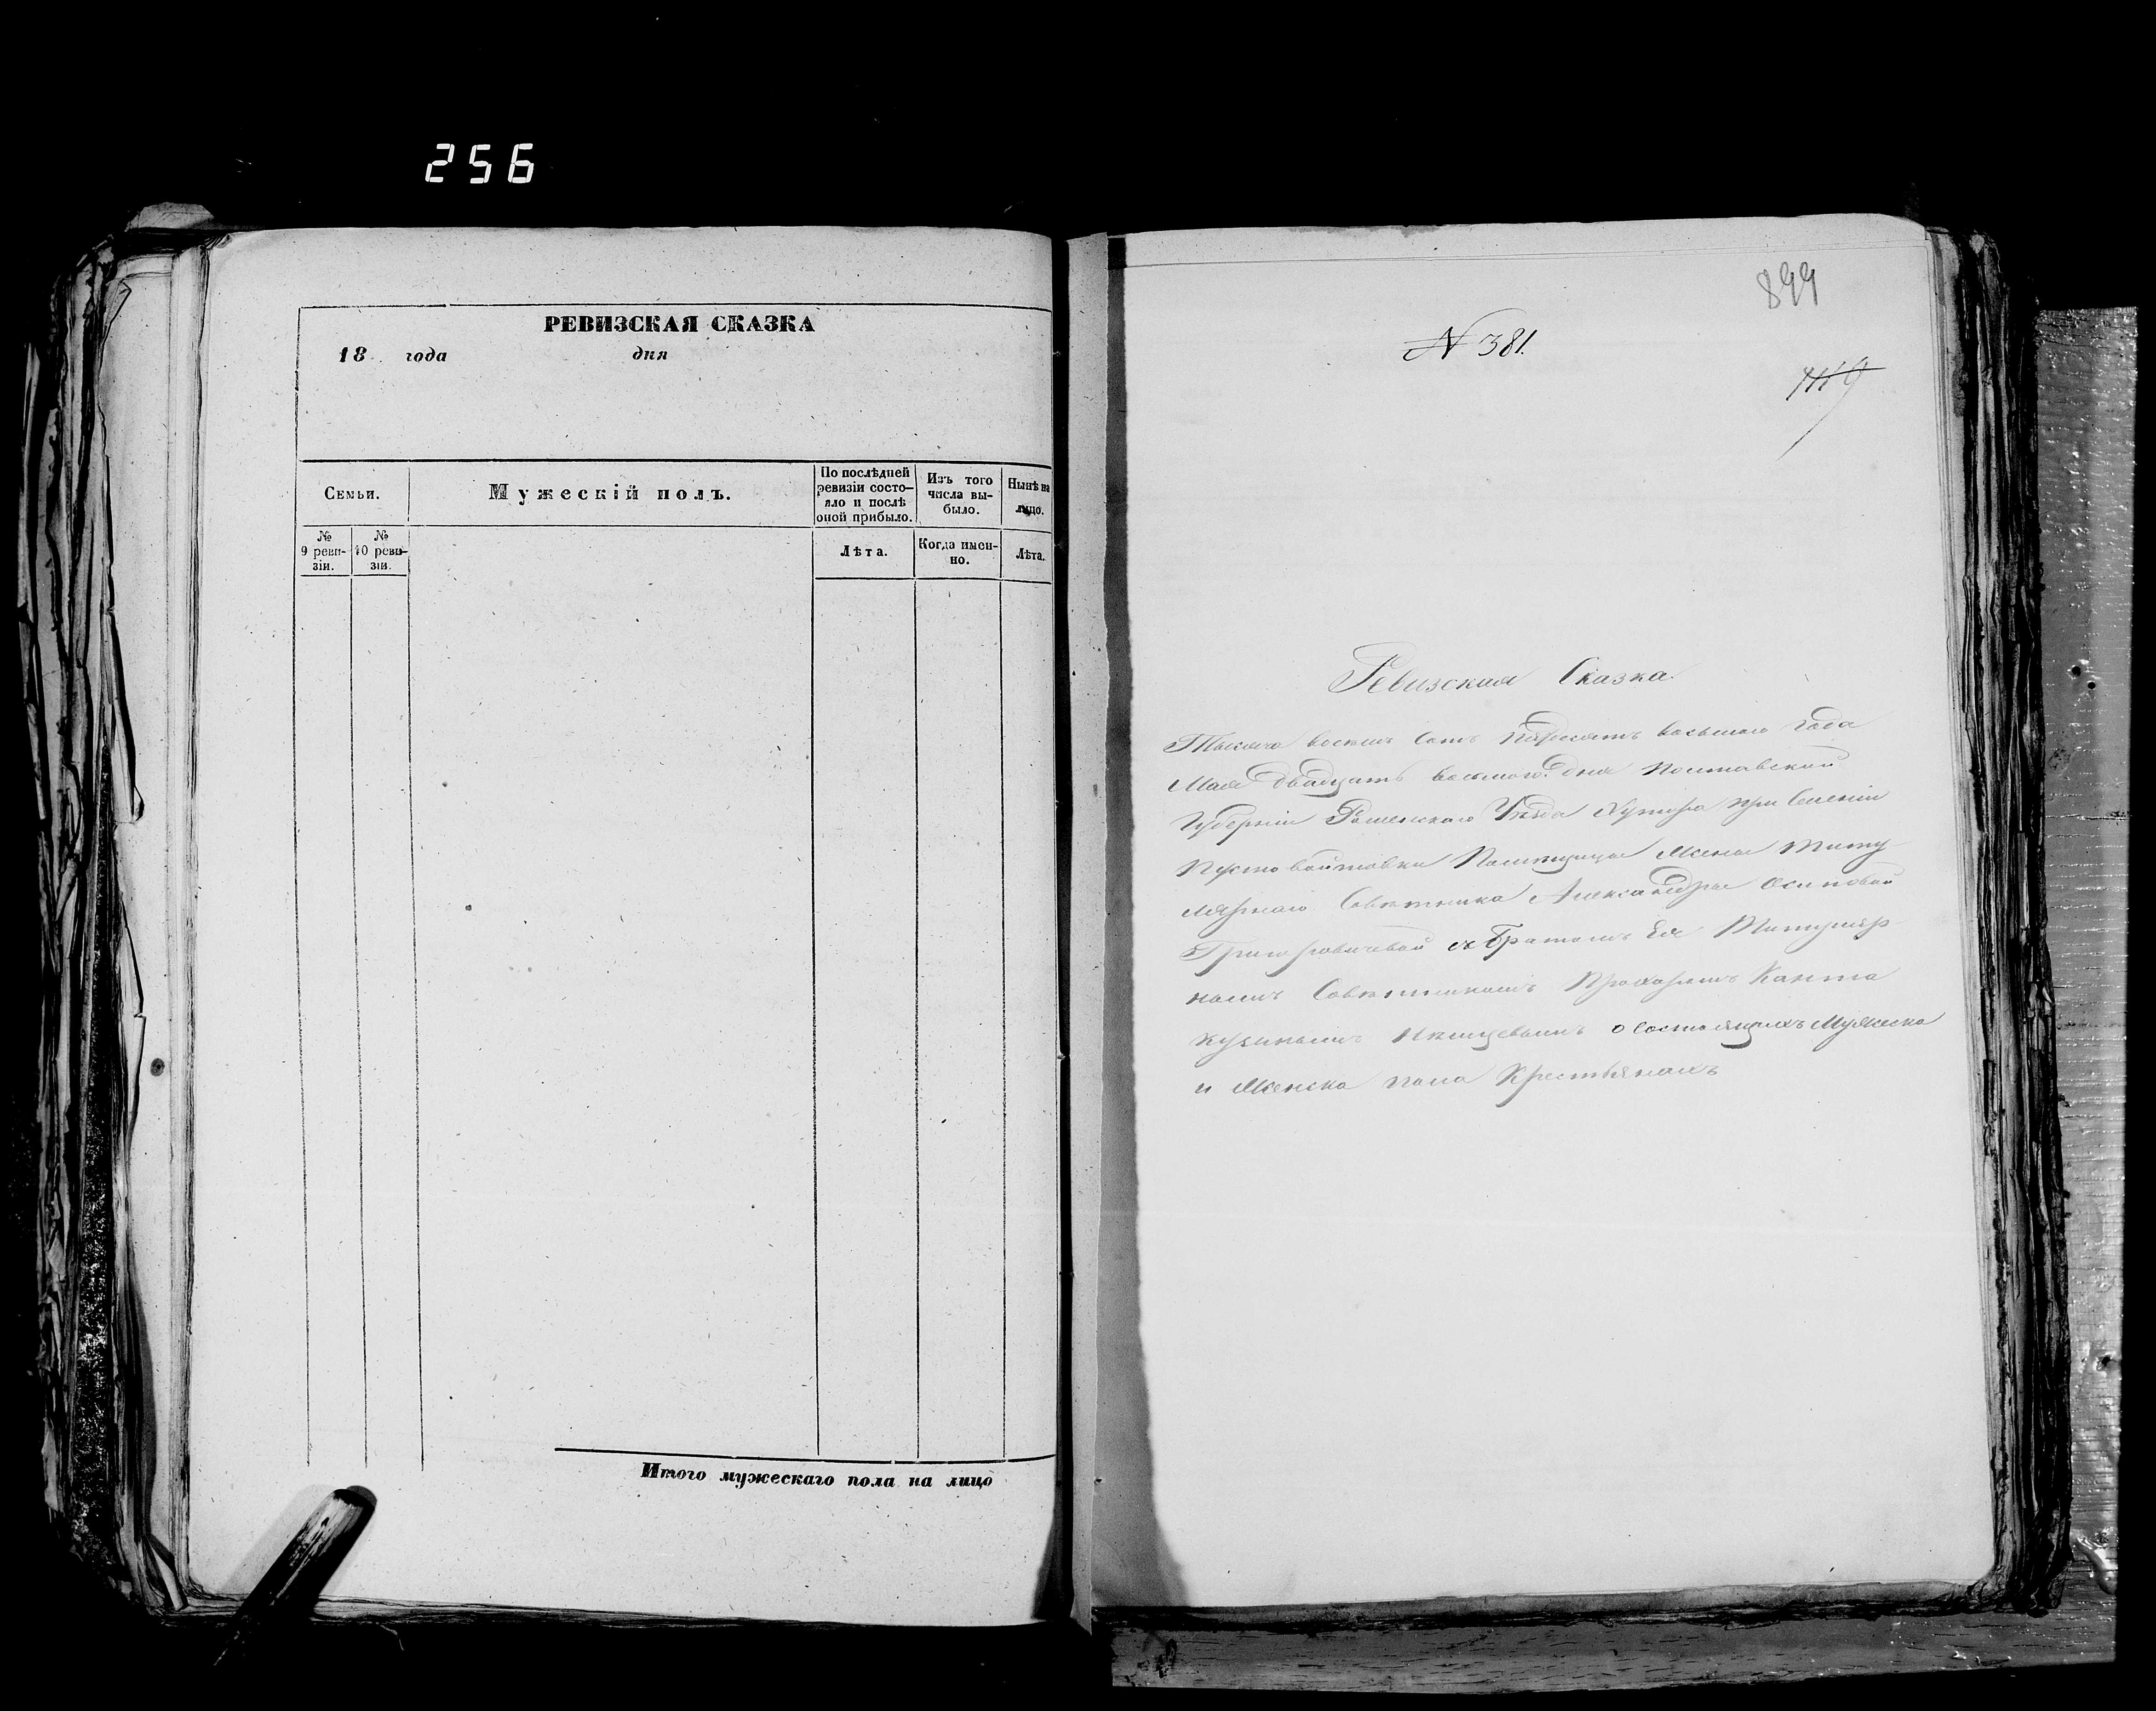 256
РЕВИЗСКАЯ СКАЗКА
18 года дня
Семьи.
Мужескій полъ.
По послѣдней
ревизіи состо-
яло и послѣ
оной прибыло.
Изъ того
числа вы-
было.
Нынѣ на
лицо.
№
9 реви-
зіи.
№
10 реви-
зіи.
Лѣта.
Когда имен-
но.
Лѣта.
Итого мужескаго пола на лицо
899
N 381.
Ревизская Сказка
Тысяча восемь сотъ пядесятъ восьмаго года
Мая двадцать восмого дня Полтавской
Губерніи Роменскаго Уѣзда Хутора при Селеніи
Помещицы Жены Титу
лярнаго Совѣтника Александры Осиповой
Григоровичевой съ Братомъ Ея Титуляр
нымъ Совѣтникомъ Канта
кузинымъ о состоящихъ Мужеска
и Женска пола Крестьянахъ